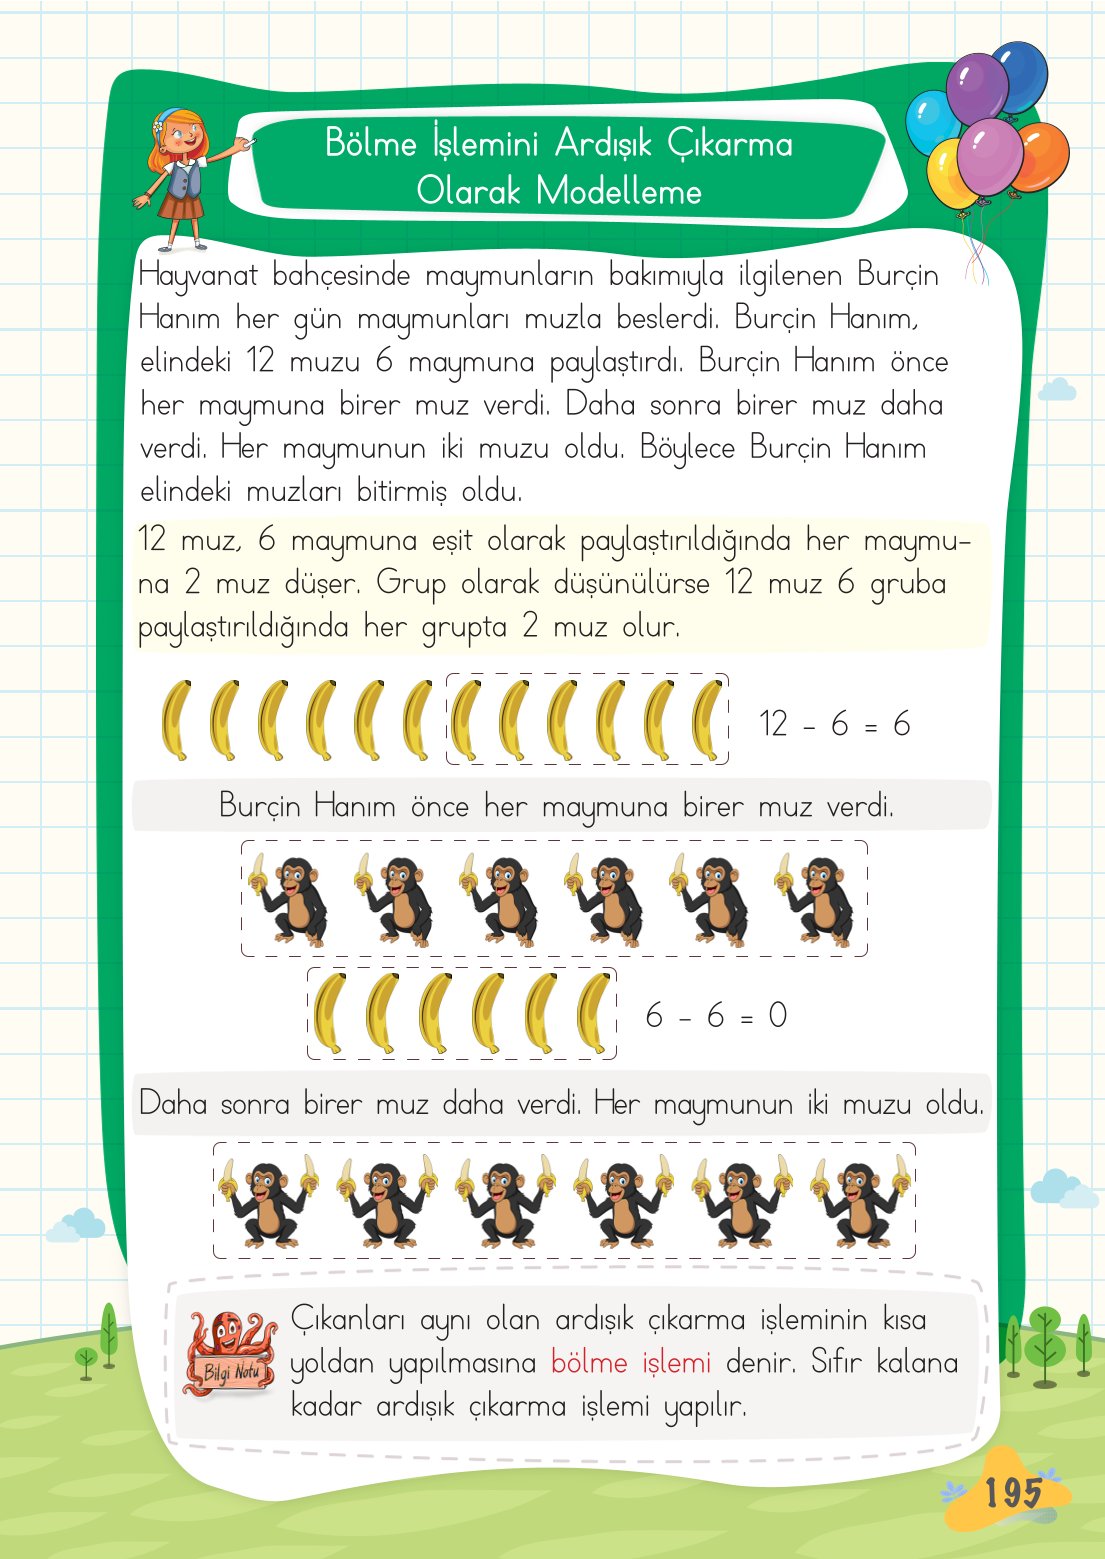 Bölme İşlemini Ardışık Çıkarma
Olarak Modelleme
Hayvanat bahçesinde maymunların bakımıyla ilgilenen Burçin
Hanım her gün maymunları muzla beslerdi. Burçin Hanım,
elindeki 12 muzu 6 maymuna paylaştırdı. Burçin Hanım önce
her maymuna birer muz verdi. Daha sonra birer muz daha
verdi. Her maymunun iki muzu oldu. Böylece Burçin Hanım
elindeki muzları bitirmiş oldu.
12 muz, 6 maymuna eşit olarak paylaştırıldığında her maymu-
na 2 muz düşer. Grup olarak düşünülürse 12 muz 6 gruba
paylaştırıldığında her grupta 2 muz olur.
12 - 6 = 6
Burçin Hanım önce her maymuna birer muz verdi.
6 - 6 = 0
Daha sonra birer muz daha verdi. Her maymunun iki muzu oldu.
Bilgi Notu
Çıkanları aynı olan ardışık çıkarma işleminin kısa
yoldan yapılmasına bölme işlemi denir. Sıfır kalana
kadar ardışık çıkarma işlemi yapılır.
195